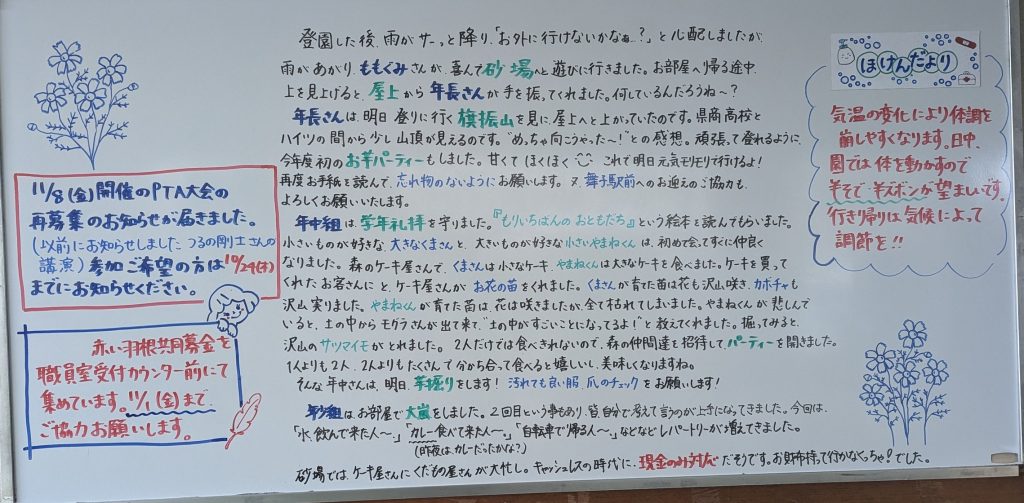 登園した後、雨がサーっと降り、「お外に行けないかなぁ…?」と心配しましたが、
雨があがり、ももぐみさんが、喜んで砂場へと遊びに行きました。お部屋へ帰る途中、
上を見上げると、屋上から年長さんが手を振ってくれました。何しているんだろうね〜?
年長さんは、明日登りに行く旗振山を見に、屋上へと上がっていたのです。県商高校と
ハイツの間から少し山頂が見えるのです。“めっちゃ向こうやった〜!”との感想。頑張って登れるように、
今年度初のお芋パーティーもしました。甘くてほくほく これで明日元気モリモリで行けるよ!
再度お手紙を読んで、忘れ物のないようにお願いします。又、舞子駅前へのお迎えのご協力も、
よろしくお願いいたします。
年中組は、学年礼拝を守りました。『もりいちばんのおともだち』という絵本を読んでもらいました。
小さいものが好きな、大きなくまさんと、大きいものが好きな小さいやまねくんは、初めて会ってすぐに仲良く
なりました。森のケーキ屋さんで、くまさんは小さなケーキ、やまねくんは大きなケーキを食べました。ケーキを買って
くれたお客さんにと、ケーキ屋さんがお花の苗をくれました。くまさんが育てた苗は花も沢山咲き、カボチャも
沢山実りました。やまねくんが育てた苗は、花は咲きましたが、全て枯れてしまいました。やまねくんが悲しんで
いると、土の中からモグラさんが出て来て、“土の中がすごいことになってるよ!”と教えてくれました。掘ってみると、
沢山のサツマイモがとれました。2人だけでは食べきれないので、森の仲間達を招待して、パーティーを開きました。
1人よりも2人、2人よりもたくさんで分かち合って食べると嬉しいし、美味しくなりますね。
そんな年中さんは、明日、芋掘りをします! 汚れても良い服 爪のチェックをお願いします!
年少組は、お部屋で大嵐をしました。2回目という事もあり、皆、自分で考えて言うのが上手になってきました。今回は、
「水、飲んで来た人〜」「カレー食べて来た人〜」「自転車で帰る人〜」などなどレパートリーが増えてきました。
(昨夜は、カレーだったかな?)
砂場では、ケーキ屋さんにくだもの屋さんが大忙し。キャッシュレスの時代に、現金のみ対応だそうです。お財布持って行かなくっちゃ!でした。
11/8(金)開催のPTA大会の
再募集のお知らせが届きました。
(以前にお知らせしました つるの剛士さんの
講演)参加ご希望の方は10/29(火)
までにお知らせください。
赤い羽根共同募金を
職員室受付カウンター前にて
集めています。11/1(金)まで、
ご協力お願いします。
ほけんだより
気温の変化により体調を
崩しやすくなります。日中、
園では体を動かすので
半そで・半ズボンが望ましいです。
行き帰りは気候によって
調節を!!